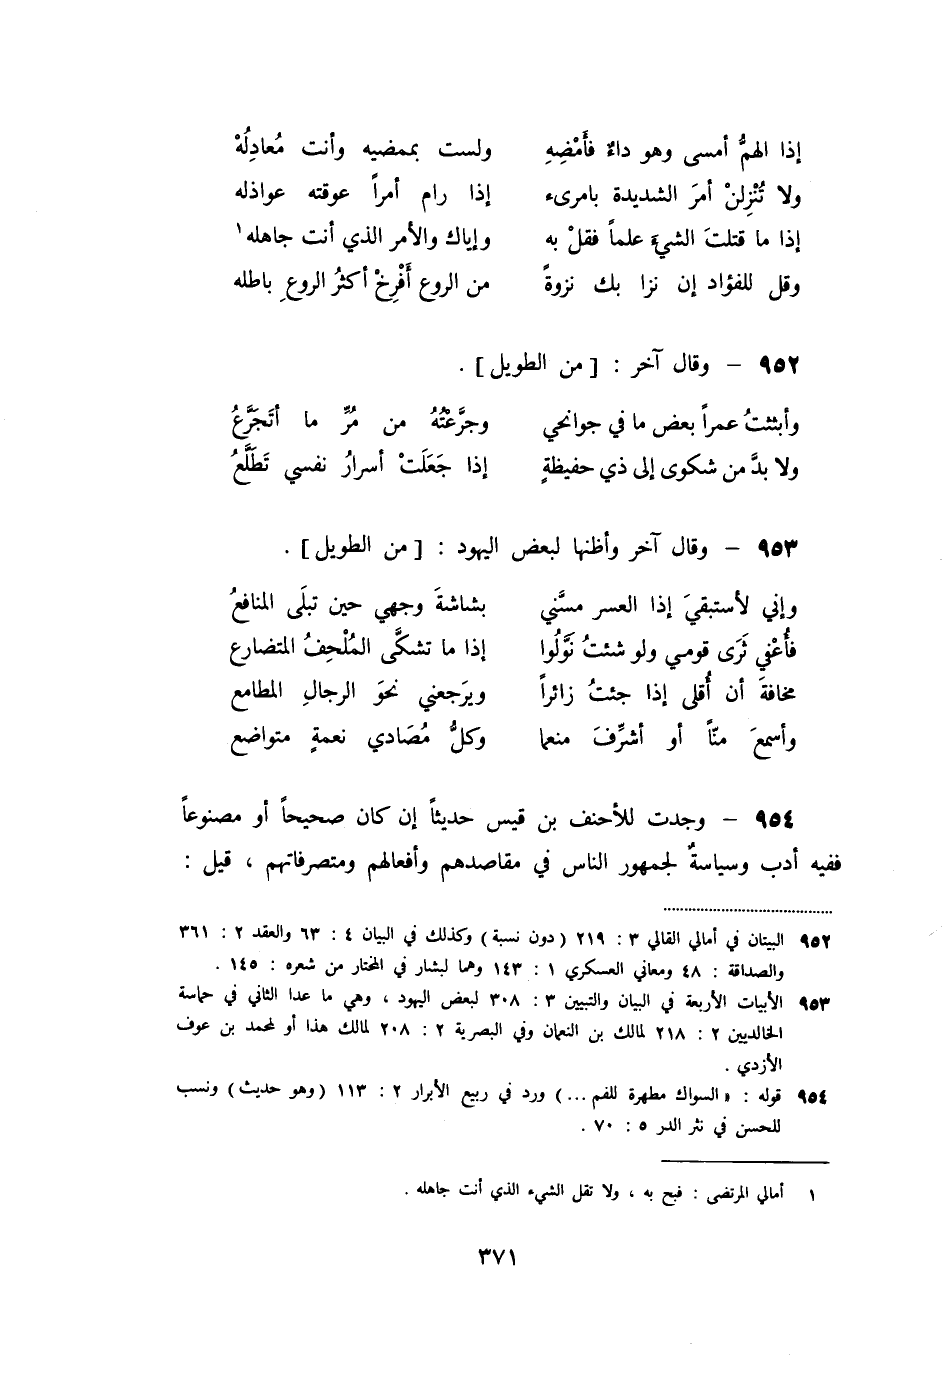 إذا الهمُّ أمسى وهو داءٌ فأَمْضِهِ ولست بممضيه وأنت مُعادِلُهْ
ولا تُنْزِلنْ أمرَ الشديدة بامرىء إذا رام أمراً عوقته عواذله
إذا ما قتلتَ الشيءَ علماً فقلْ به وإياك والأمر الذي أنت جاهله١
وقل للفؤاد إن نزا بك نزوةً من الروع أَفْرِخْ أكثرُ الروعِ باطله
٩٥٢ – وقال آخر : [ من الطويل ] .
وأبثثتُ عمراً بعض ما في جوانحي وجرَّعْتُهُ من مُرِّ ما أتَجَرَّعُ
ولا بدَّ من شكوى إلى ذي حفيظةٍ إذا جَعَلَتْ أسرارُ نفسي تَطَلَّعُ
٩٥٣ – وقال آخر وأظنها لبعض اليهود : [ من الطويل ] .
وإني لأستبقيَ إذا العسر مسَّني بشاشةَ وجهي حين تبلَى المنافعُ
فأُعْفي ثَرَى قومي ولو شئتُ نَوَّلُوا إذا ما تشكَّى المُلْحِفُ المتضارع
مخافةَ أن أُقلى إذا جئتُ زائراً ويرَجعني نحوَ الرجالِ المطامع
وأسمعَ منّاً أو أشرِّفَ منعما وكلُّ مُصَادي نعمةٍ متواضع
٩٥٤ – وجدت للأحنف بن قيس حديثاً إن كان صحيحاً أو مصنوعاً
ففيه أدب وسياسةٌ لجمهور الناس في مقاصدهم وأفعالهم ومتصرفاتهم ، قيل :
٩٥٢ البيتان في أمالي القالي ٣ : ٢١٩ ( دون نسبة ) وكذلك في البيان ٤ : ٦٣ والعقد ٢ : ٣٦١
والصداقة : ٤٨ ومعاني العسكري ١ : ١٤٣ وهما لبشار في المختار من شعره : ١٤٥ .
٩٥٣ الأبيات الأربعة في البيان والتبيين ٣ : ٣٠٨ لبعض اليهود ، وهي ما عدا الثاني في حماسة
الخالديين ٢ : ٢١٨ لمالك بن النعمان وفي البصرية ٢ : ٢٠٨ لمالك هذا أو لمحمد بن عوف
الأزدي .
٩٥٤ قوله : « السواك مطهرة للفم ... ) ورد في ربيع الأبرار ٢ : ١١٣ ( وهو حديث ) ونسب
للحسن في نثر الدر ٥ : ٧٠ .
١ أمالي المرتضى : فبح به ، ولا تقل الشيء الذي أنت جاهله .
٣٧١